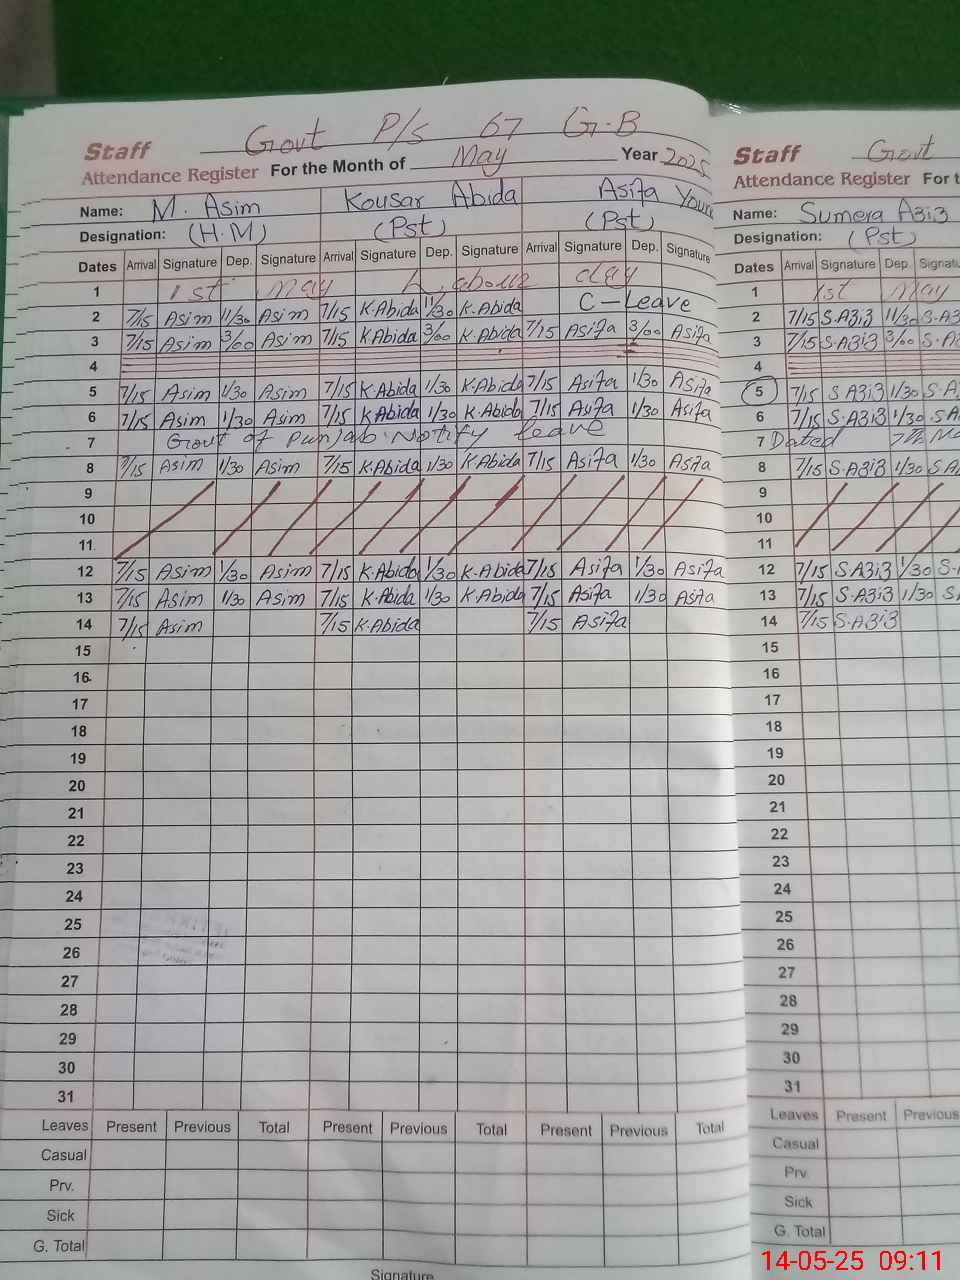 Govt P/s 67 G-B
Staff
Attendance Register For the Month of May Year 2025
Name: M. Asim Kousar Abida Asifa
Designation: (H.M) (Pst) (Pst)
Dates Arrival Signature Dep. Signature Arrival Signature Dep. Signature Arrival Signature Dep. Signature
1 1st May Labour day
2 7/15 Asim 11/30 Asim 7/15 K.Abida 11/30 K.Abida C-Leave
3 7/15 Asim 3/00 Asim 7/15 K.Abida 3/00 K.Abida 7/15 Asifa 3/00 Asifa
4
5 7/15 Asim 1/30 Asim 7/15 K.Abida 1/30 K.Abida 7/15 Asifa 1/30 Asifa
6 7/15 Asim 1/30 Asim 7/15 K.Abida 1/30 K.Abida 7/15 Asifa 1/30 Asifa
7 Govt of Punjab Notify leave
8 7/15 Asim 1/30 Asim 7/15 K.Abida 1/30 K.Abida 7/15 Asifa 1/30 Asifa
9
10
11
12 7/15 Asim 1/30 Asim 7/15 K.Abida 1/30 K.Abida 7/15 Asifa 1/30 Asifa
13 7/15 Asim 1/30 Asim 7/15 K.Abida 1/30 K.Abida 7/15 Asifa 1/30 Asifa
14 7/15 Asim 7/15 K.Abida 7/15 Asifa
15
16
17
18
19
20
21
22
23
24
25
26
27
28
29
30
31
Leaves Present Previous Total Present Previous Total Present Previous Total
Casual
Prv.
Sick
G. Total
Signature
Govt
Staff
Attendance Register For t
Name: Sumera A3i3
Designation: (Pst)
Dates Arrival Signature Dep. Signatu
1 1st May
2 7/15 S.A3i3 11/30 S.A3
3 7/15 S.A3i3 3/00 S.A
4
5 7/15 S.A3i3 1/30 S.A
6 7/15 S.A3i3 1/30 S.A
7 Dated 7th Ma
8 7/15 S.A3i3 1/30 S.A
9
10
11
12 7/15 S.A3i3 1/30 S.
13 7/15 S.A3i3 1/30 S.
14 7/15 S.A3i3
15
16
17
18
19
20
21
22
23
24
25
26
27
28
29
30
31
Leaves Present Previous
Casual
Prv.
Sick
G. Total
14-05-25 09:11